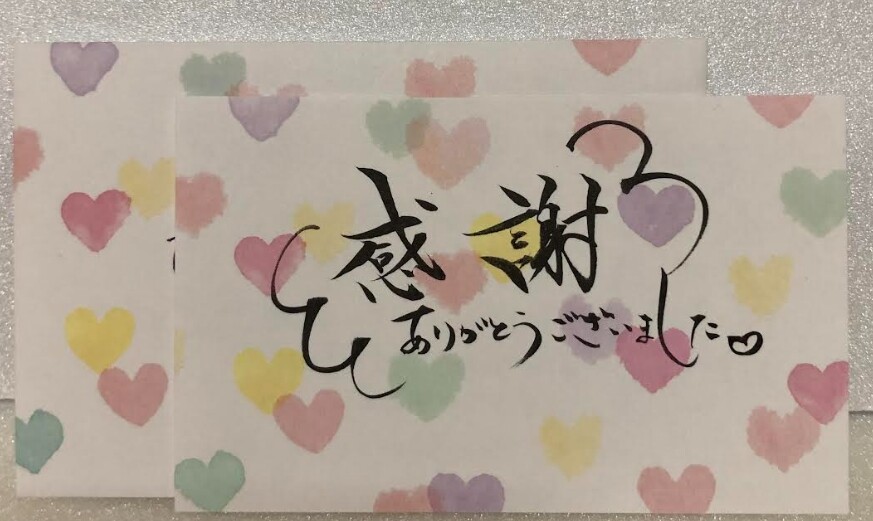 感謝
ありがとうございました♡